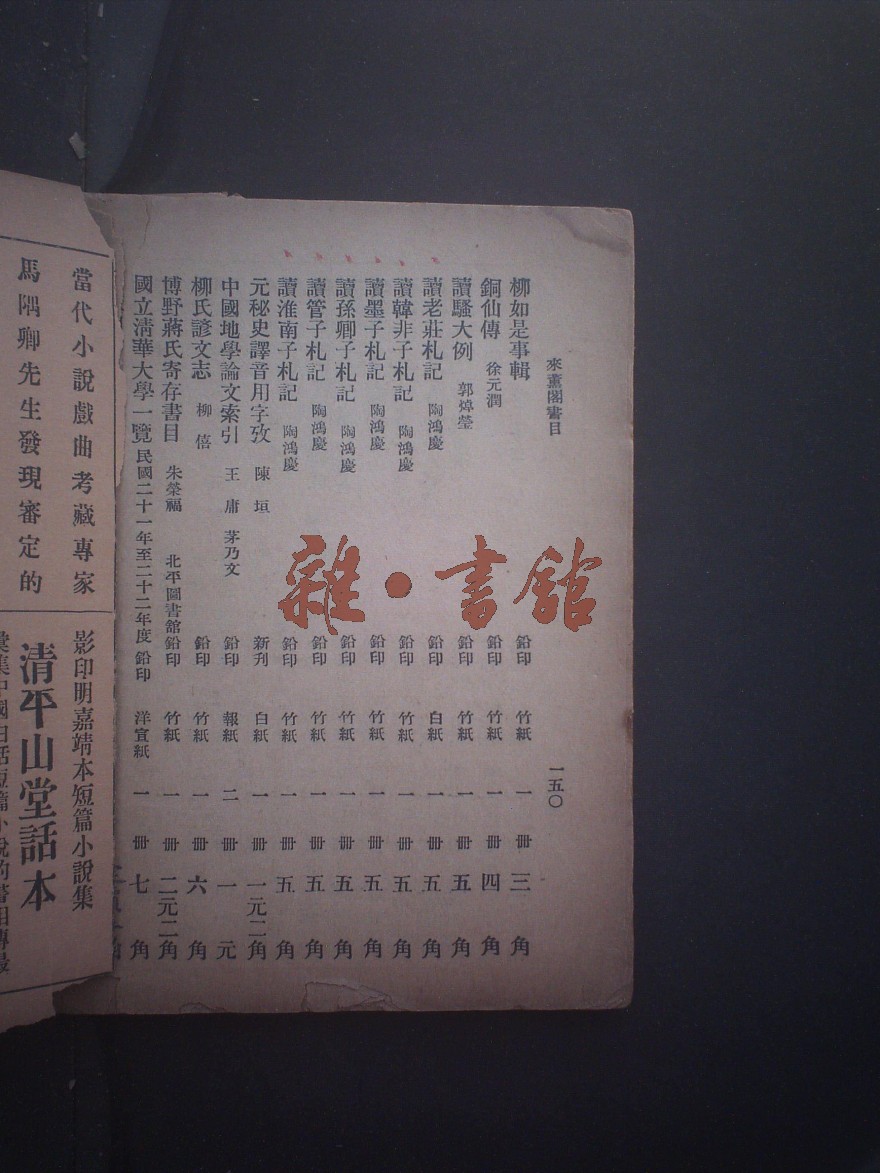 來薰閣書目 一五〇
柳如是事輯 鉛印 竹紙 一冊 三角
銅仙傳 徐元潤 鉛印 竹紙 一冊 四角
讀騷大例 郭焯瑩 鉛印 竹紙 一冊 五角
讀老莊札記 陶鴻慶 鉛印 白紙 一冊 五角
讀韓非子札記 陶鴻慶 鉛印 竹紙 一冊 五角
讀墨子札記 陶鴻慶 鉛印 竹紙 一冊 五角
讀孫卿子札記 陶鴻慶 鉛印 竹紙 一冊 五角
讀管子札記 陶鴻慶 鉛印 竹紙 一冊 五角
讀淮南子札記 陶鴻慶 鉛印 竹紙 一冊 五角
元秘史譯音用字攷 陳垣 新刊 白紙 一冊 一元二角
中國地學論文索引 王庸 茅乃文 鉛印 報紙 二冊 一元
柳氏諺文志 柳僖 鉛印 竹紙 一冊 六角
博野蔣氏寄存書目 朱榮福 北平圖書館鉛印 竹紙 一冊 二元二角
國立清華大學一覽 民國二十一年至二十二年度 鉛印 洋宣紙 一冊 七角
當代小說戲曲考藏專家
馬隅卿先生發現審定的
影印明嘉靖本短篇小說集
清平山堂話本
雜·書館